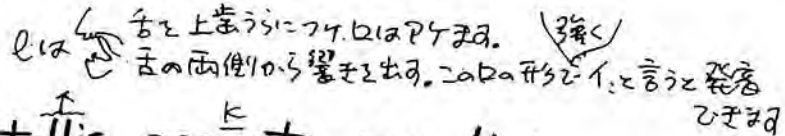 lは 舌を上歯うらにつけ.口はアケます。
舌の両側から響きを出す。この口の形で イ:と言うと発音
強く
できます
k